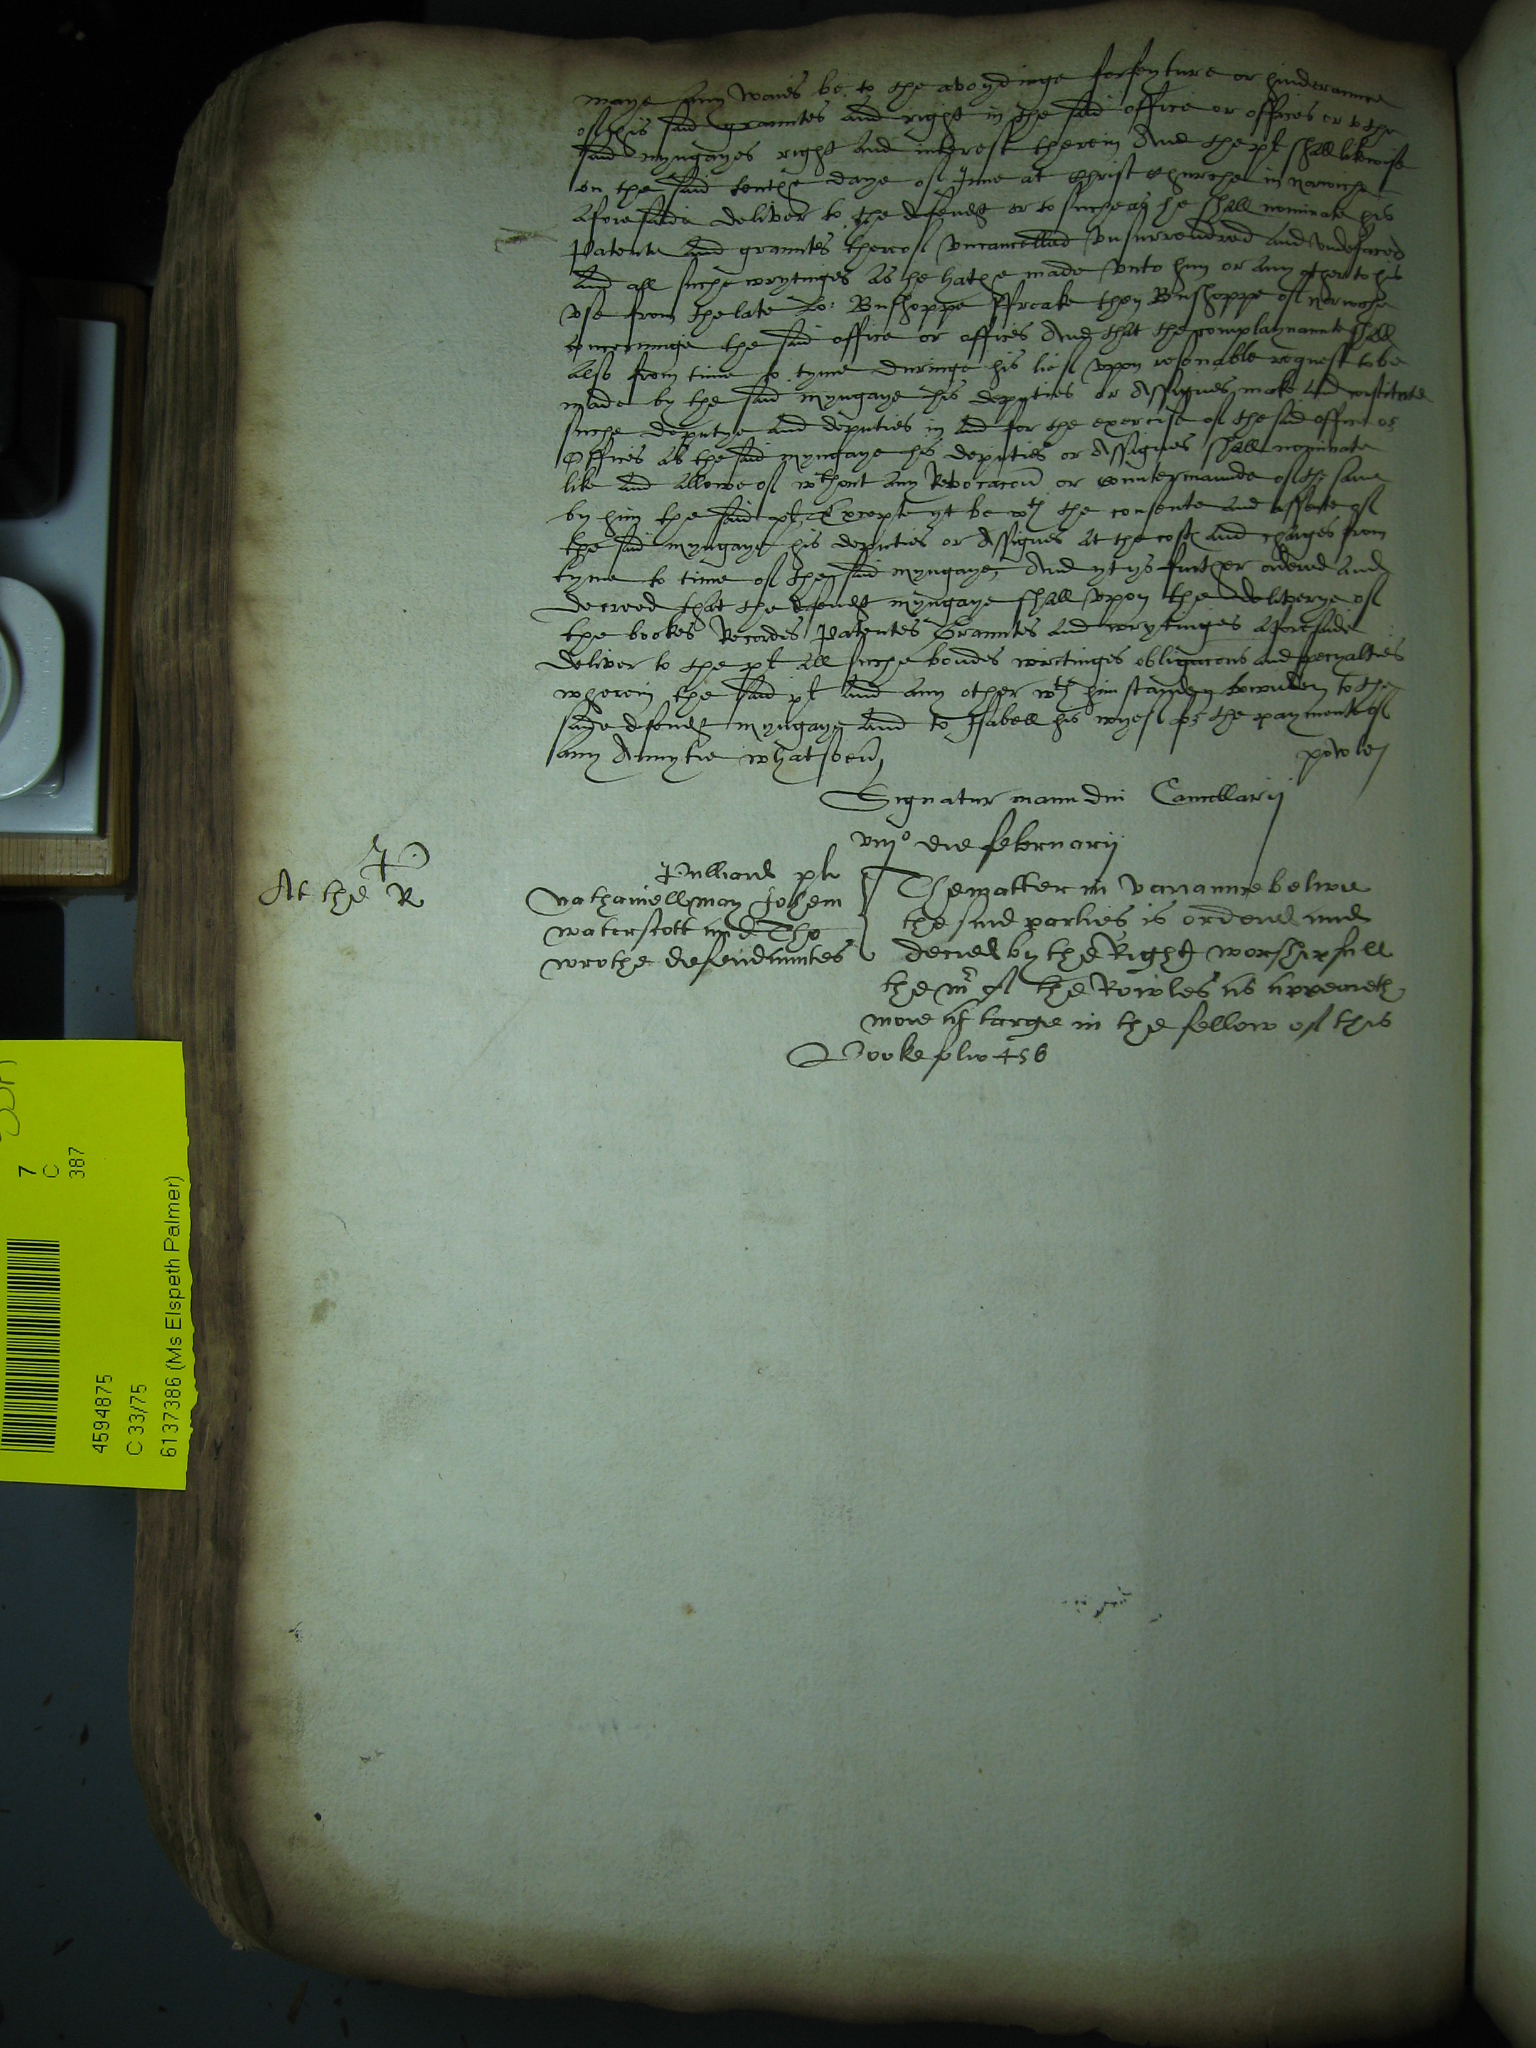 maye any waies be to the avoydinge forfeyture or hinderaunce
of his said grauntes and right in the said office or offices or to the
said myngayes right and interest therein And the pl shall likewise
on the said tenthe daye of June at Christ Churche in Norwiche
aforesaide deliver to the defendt or to suche as he shall nominate his
Patente and grauntes thereof uncancelled unsurrendred and undefaced
And all suche wrytinges as he hathe made unto him or any other to his
use from the late Lo: Busshoppe ffreake then Busshoppe of Norwiche
concerninge the said office or offices And that the complaynaunte shall
also from time to tyme duringe his lief upon resonable request to be
made by the said Myngaye his deputies or Assignes make and constitute
suche deputye and deputies in and for the exercise of the said office or
Offices as the said Myngaye his deputies or Assignes shall nominate
like and allowe of wthout any Revocacon or countermaunde of the same
by him the said pl Except yt be wth the consente and assente of
the said Myngaye his deputies or Assignes at the cost and charges from
tyme to time of the said Myngaye, And yt ys further ordered and
decreed that the defendt Myngaye shall upon the deliverye of
the bookes Recordes Patentes Grauntes and wrytinges aforesaide
deliver to the pl all suche bondes writinges obligacons and specyalties
wherein the said pl and any other wth him standeth bounden to the
saide defendt Myngaye and to Isabell his wyef for the payment of
any Anuytie whatsoever,
powle
Signatur manu dni Cancellarij
viijo die februarij
At the R
Pulliard pl
Nathaniell may Johem
waterscott and Tho
wrothe defendauntes
The matter in variaunce betwne
the said parties is ordered and
decreed by the Right worshipfull
the mr of the Rowles as appeareth
more at large in the fellow of this
Booke folio 456
7
C
387
4594875
C 33/75
6137386 (Ms Elspeth Palmer)